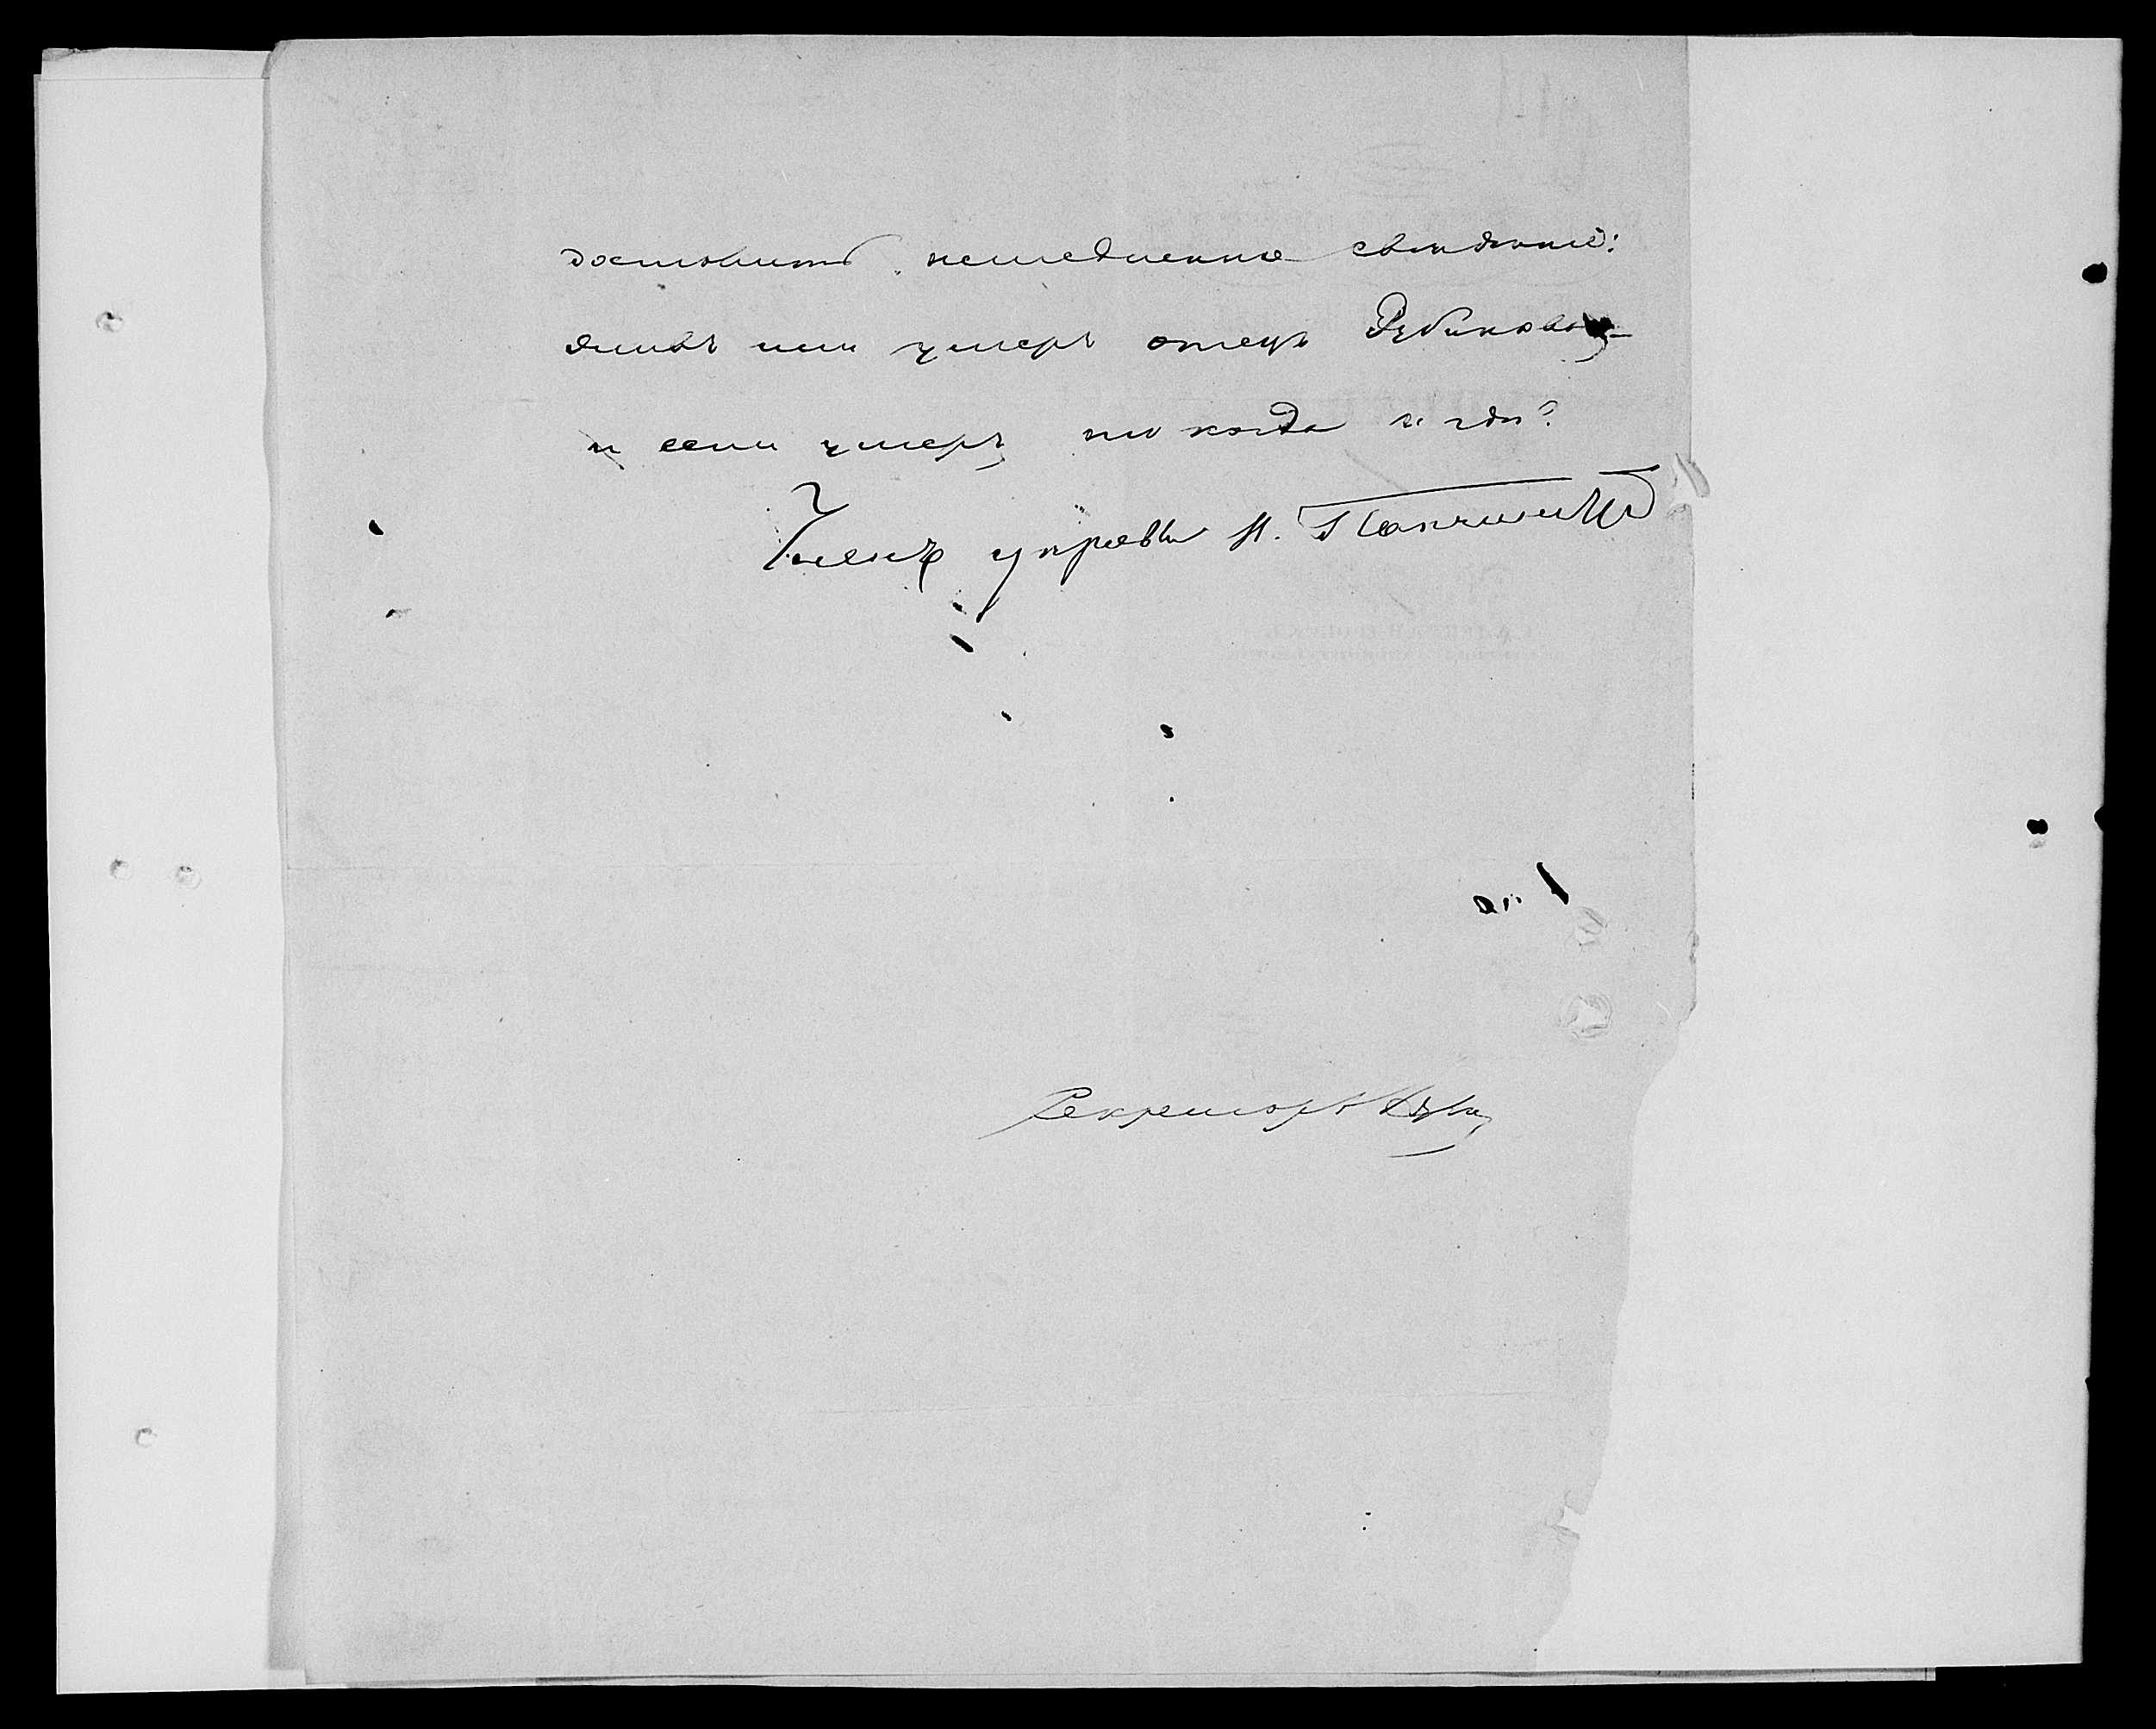 доставить немедленно свѣдѣніе:
живъ или умеръ отецъ Рубиновъ
и если умеръ, то когда и гдѣ?
Членъ управы Н.
Секретарь